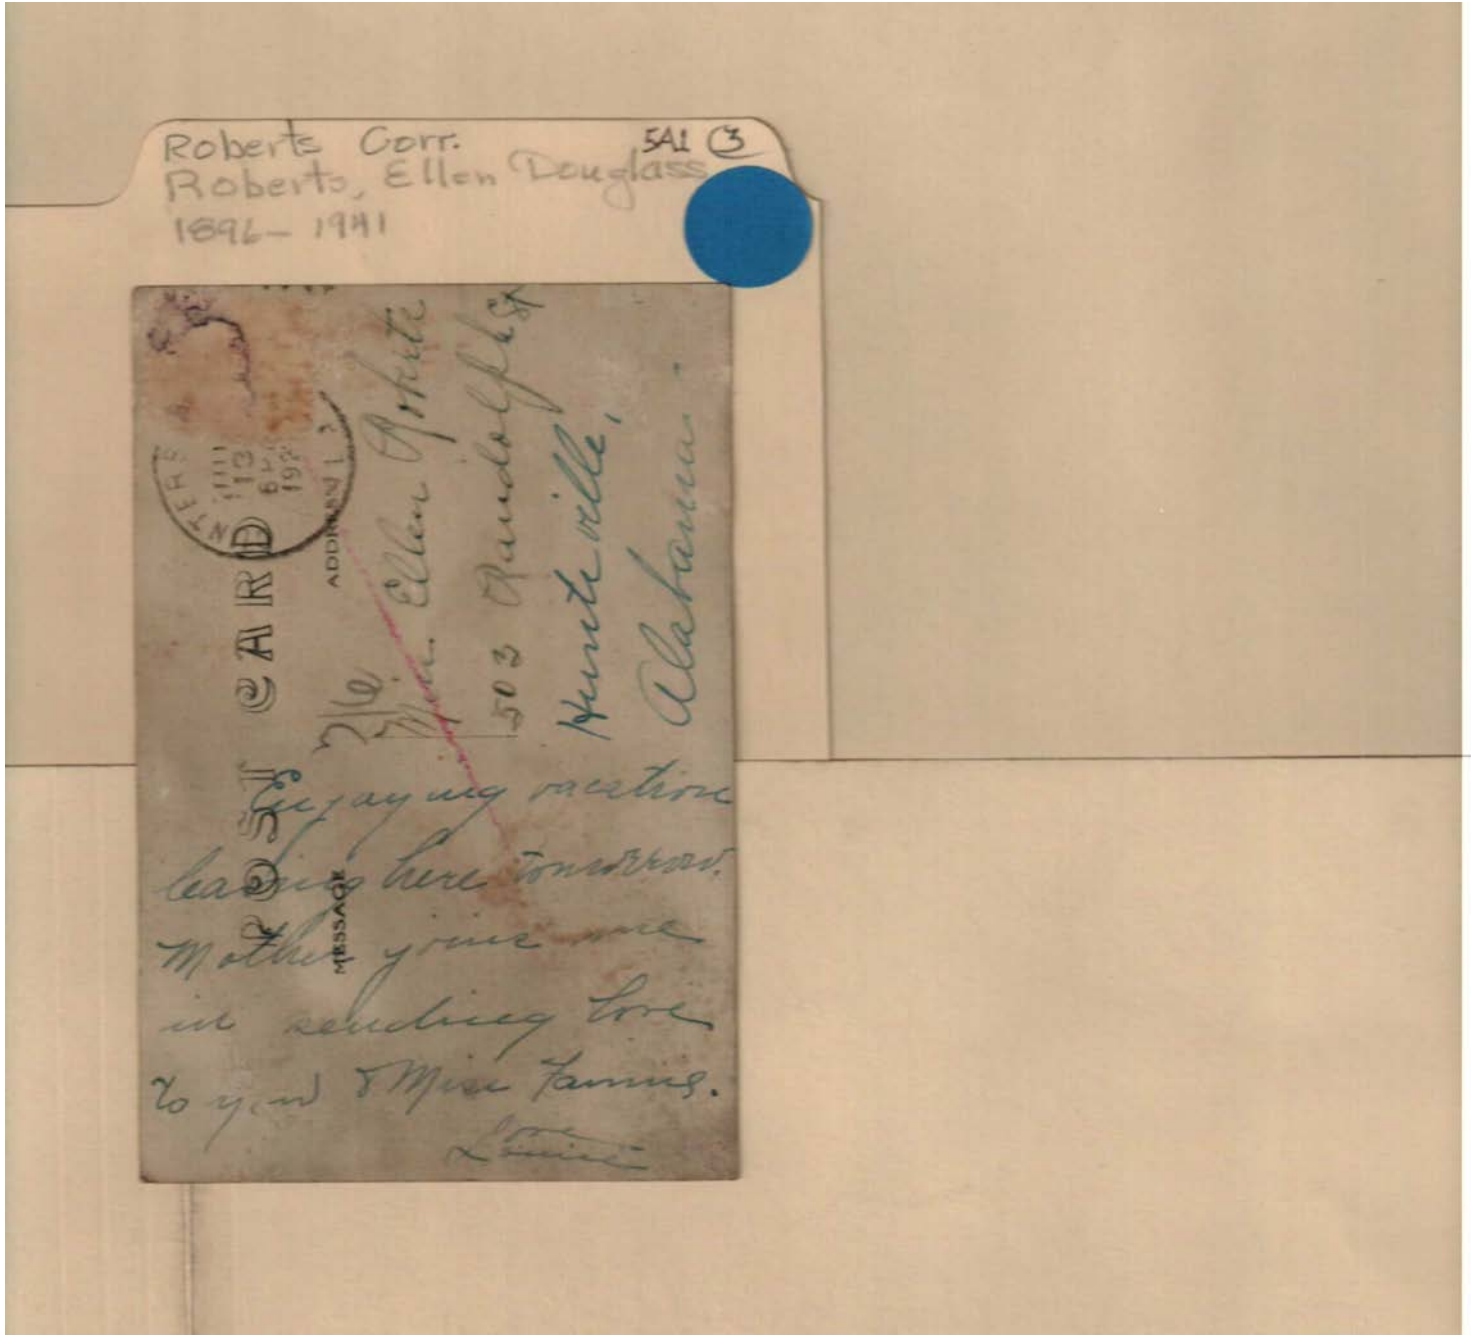 Roberts Corr. 5A1 3
Roberts, Ellen Douglass
1896-1941
POST CARD
ADDRESS
MESSAGE
NTERS
13
192
3/6
Miss. Ellen Roberts
503 Randolph St
Huntsville,
Alabama.
Enjoying vacation
leaving here tomorrow.
Mother joins me
in sending love
to you & Miss Fannie.
Love
Louise